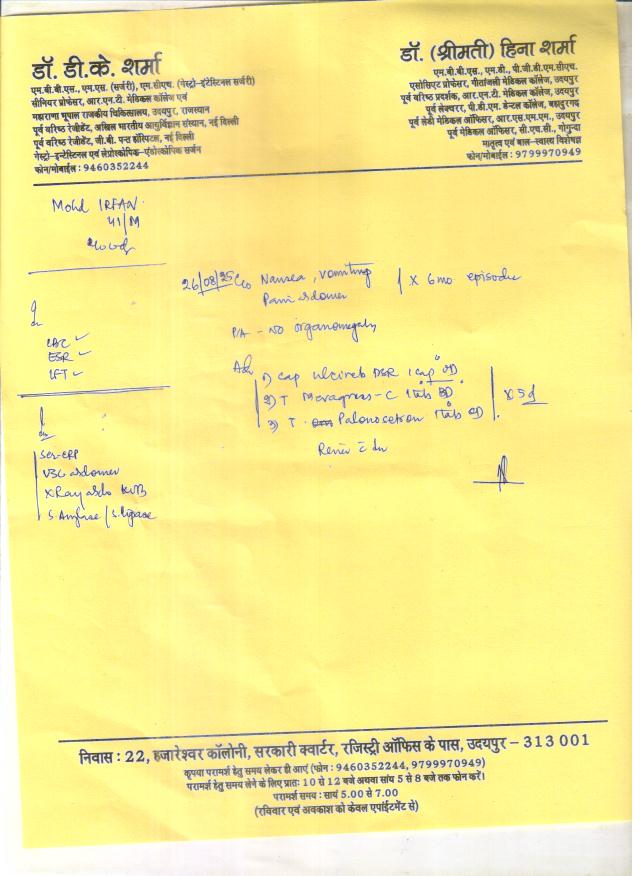 डॉ. डी.के. शर्मा
एम.बी.बी.एस., एम.एस. (सर्जरी), एम.सीएच. (गेस्ट्रो-इंटेस्टिनल सर्जरी)
सीनियर प्रोफेसर, आर.एन.टी. मेडिकल कॉलेज एवं
महाराणा भूपाल राजकीय चिकित्सालय, उदयपुर, राजस्थान
पूर्व वरिष्ठ रेजीडेंट, अखिल भारतीय आयुर्विज्ञान संस्थान, नई दिल्ली
पूर्व वरिष्ठ रेजीडेंट, जी.बी. पन्त हॉस्पिटल, नई दिल्ली
गेस्ट्रो-इन्टेस्टिनल एवं लेप्रोस्कोपिक-एंडोस्कोपिक सर्जन
फोन/मोबाईल : 9460352244
डॉ. (श्रीमती) हिना शर्मा
एम.बी.बी.एस., एम.डी., पी.जी.डी.एम.सीएच.
एसोसिएट प्रोफेसर, गीतांजली मेडिकल कॉलेज, उदयपुर
पूर्व वरिष्ठ प्रदर्शक, आर.एन.टी. मेडिकल कॉलेज, उदयपुर
पूर्व लेक्चरर, पी.डी.एम. डेन्टल कॉलेज, बहादुरगढ़
पूर्व लेडी मेडिकल ऑफिसर, आर.एस.एम.एम., उदयपुर
पूर्व मेडिकल ऑफिसर, सी.एच.सी., गोगुन्दा
मातृत्व एवं बाल-स्वास्थ्य विशेषज्ञ
फोन/मोबाईल : 9799970949
Mohd IRFAN
41/M
CBC
ESR
LFT
Ser-CRP
USG abdomen
X Ray abdo KUB
S. Amylase / S. lipase
26/08/25 C/o Nausea, vomiting
Pain abdomen
x 6mo episodic
P/A - No organomegaly
Adv
1) Cap DSR 1 cap OD
2) T -C 1 tab BD
3) T. Palonosetron 1 tab OD
x 5d
Review c
निवास : 22, हजारेश्वर कॉलोनी, सरकारी क्वार्टर, रजिस्ट्री ऑफिस के पास, उदयपुर – 313 001
कृपया परामर्श हेतु समय लेकर ही आएं (फोन : 9460352244, 9799970949)
परामर्श हेतु समय लेने के लिए प्रातः 10 से 12 बजे अथवा सांय 5 से 8 बजे तक फोन करें।
परामर्श समय : सायं 5.00 से 7.00
(रविवार एवं अवकाश को केवल एपांईटमेंट से)